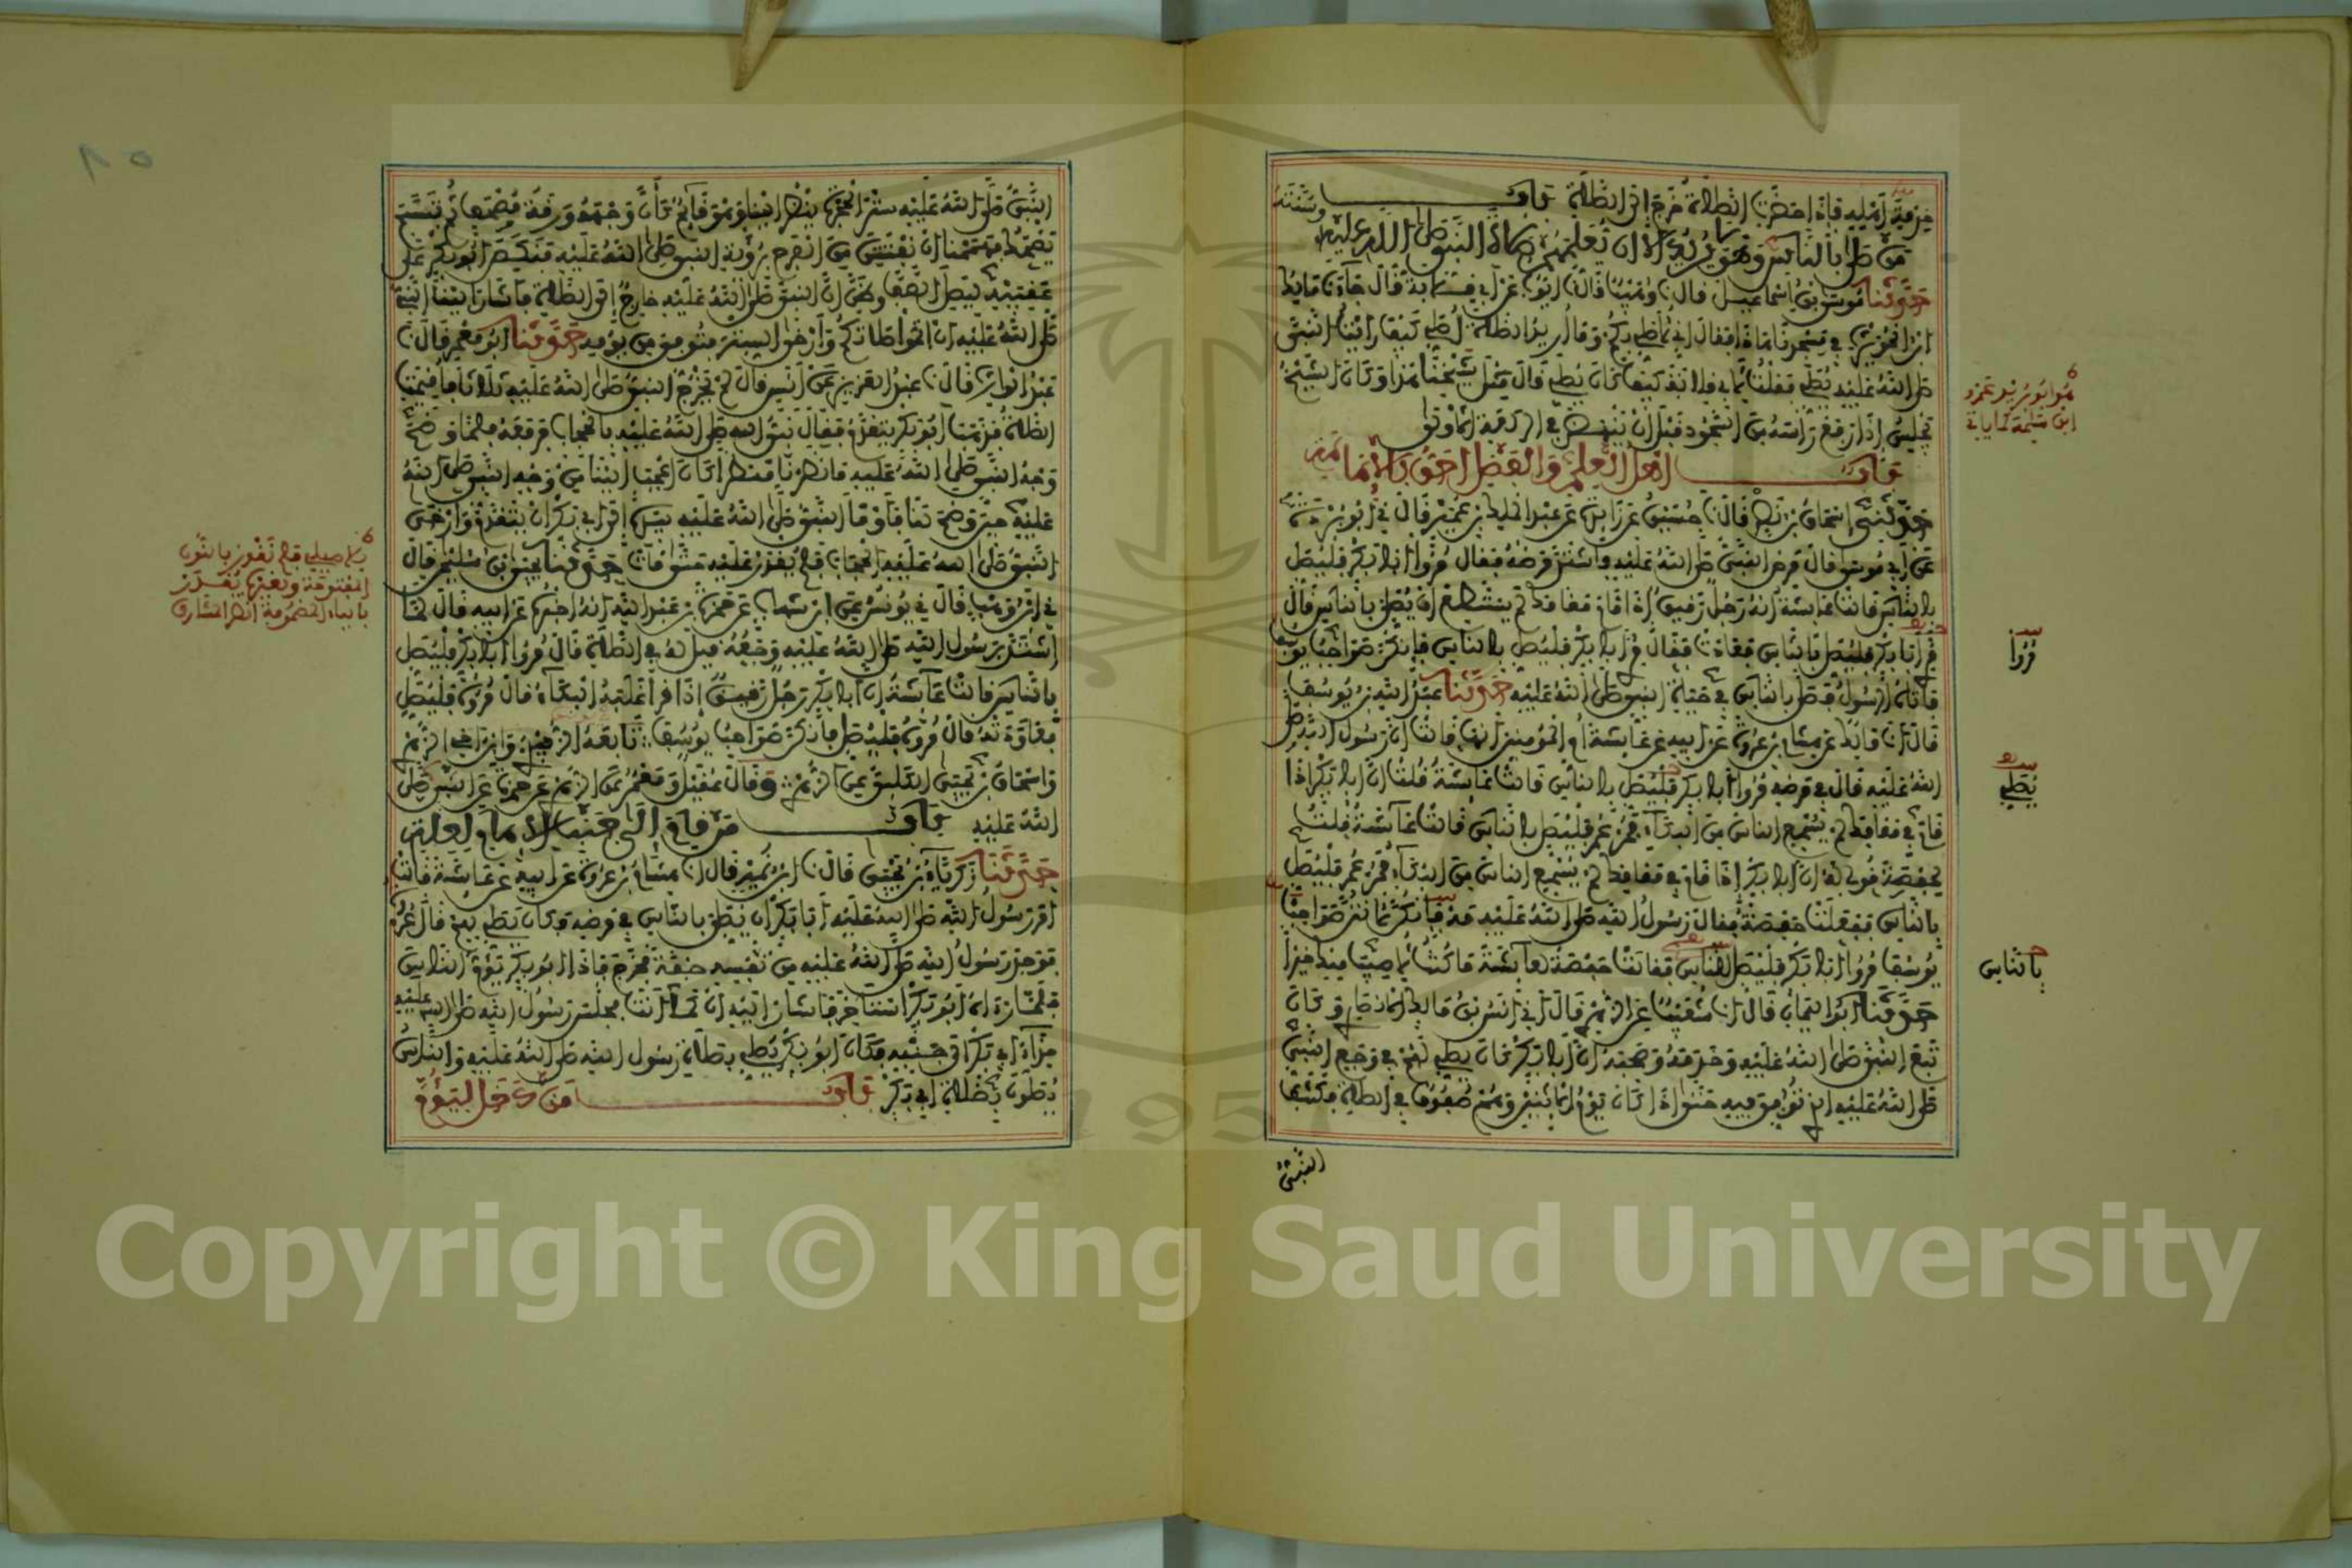 خدمة أهله فإذا حضرت الصلاة خرج إلى الصلاة باب
من صلى بالناس وهو لا يريد إلا أن يعلمهم صلاة النبي صلى الله عليه وسنته
حدثنا موسى بن إسماعيل قال نا وهيب قال نا أيوب عن أبي قلابة قال جاءنا مالك
ابن الحويرث في مسجدنا هذا فقال إني لأصلي بكم وما أريد الصلاة أصلي كيف رأيت النبي
صلى الله عليه يصلي فقلت لأبي قلابة كيف كان يصلي قال مثل شيخنا هذا وكان الشيخ
يجلس إذا رفع رأسه من السجود قبل أن ينهض في الركعة الأولى
باب أهل العلم والفضل أحق بالإمامة
حدثني إسحاق بن نصر قال نا حسين عن زايدة عن عبد الملك بن عمير قال ني أبو بردة
عن أبي موسى قال مرض النبي صلى الله عليه واشتد مرضه فقال مروا أبا بكر فليصل
بالناس قالت عائشة إنه رجل رقيق إذا قام مقامك لم يستطع أن يصلي بالناس قال
مر أبا بكر فليصل بالناس فعادت فقال مر أبا بكر فليصل بالناس فإنكن صواحب يوسف
فأتاه الرسول فصلى بالناس في حياة النبي صلى الله عليه حدثنا عبد الله بن يوسف
قال أنا مالك عن هشام بن عروة عن أبيه عن عائشة أم المؤمنين أنها قالت إن رسول الله صلى
الله عليه قال في مرضه مروا أبا بكر فليصل بالناس قالت عائشة قلت إن أبا بكر إذا
قام في مقامك لم يسمع الناس من البكاء فمر عمر فليصل بالناس قالت عائشة فقلت
لحفصة قولي له إن أبا بكر إذا قام في مقامك لم يسمع الناس من البكاء فمر عمر فليصل
بالناس ففعلت حفصة فقال رسول الله صلى الله عليه مه إنكن لأنتن صواحب
يوسف مروا أبا بكر فليصل للناس فقالت حفصة لعائشة ما كنت لأصيب منك خيرا
حدثنا أبو اليمان قال أنا شعيب عن الزهري قال أخبرني أنس بن مالك الأنصاري وكان
تبع النبي صلى الله عليه وخدمه وصحبه أن أبا بكر كان يصلي لهم في وجع النبي
صلى الله عليه الذي توفي فيه حتى إذا كان يوم الاثنين وهم صفوف في الصلاة فكشف
النبي
هو أبو يزيد عمرو
ابن سلمة
مروا
يصلي
بالناس
النبي صلى الله عليه ستر الحجرة ينظر إلينا وهو قائم كأن وجهه ورقة مصحف ثم تبسم
يضحك فهممنا أن نفتتن من الفرح برؤية النبي صلى الله عليه فنكص أبو بكر على
عقبيه ليصل الصف وظن أن النبي صلى الله عليه خارج إلى الصلاة فأشار إلينا النبي
صلى الله عليه أن أتموا صلاتكم وأرخى الستر فتوفي من يومه حدثنا أبو معمر قال نا
عبد الوارث قال نا عبد العزيز عن أنس قال لم يخرج النبي صلى الله عليه ثلاثا فأقيمت
الصلاة فذهب أبو بكر يتقدم فقال نبي الله صلى الله عليه بالحجاب فرفعه فلما وضح
وجه النبي صلى الله عليه ما نظرنا منظرا كان أعجب إلينا من وجه النبي صلى الله
عليه حين وضح لنا فأومأ النبي صلى الله عليه بيده إلى أبي بكر أن يتقدم وأرخى
النبي صلى الله عليه الحجاب فلم يقدر عليه حتى مات حدثنا يحيى بن سليمن قال
ني ابن وهب قال ني يونس عن ابن شهاب عن حمزة بن عبد الله أنه أخبره عن أبيه قال لما
اشتد برسول الله صلى الله عليه وجعه قيل له في الصلاة قال مروا أبا بكر فليصل
بالناس قالت عائشة إن أبا بكر رجل رقيق إذا قرأ غلبه البكاء قال مروه فليصل
فعاودته قال مروه فليصل فإنكن صواحب يوسف تابعه الزبيدي وابن أخي الزهري
وإسحاق بن يحيى الكلبي عن الزهري وقال عقيل ومعمر عن الزهري عن حمزة عن النبي صلى
الله عليه باب من قام إلى جنب الإمام لعلة
حدثنا زكرياء بن يحيى قال نا ابن نمير قال أنا هشام بن عروة عن أبيه عن عائشة قالت
أمر رسول الله صلى الله عليه أبا بكر أن يصلي بالناس في مرضه فكان يصلي بهم قال عروة
فوجد رسول الله صلى الله عليه من نفسه خفة فخرج فإذا أبو بكر يؤم الناس
فلما رآه أبو بكر استأخر فأشار إليه أن كما أنت فجلس رسول الله صلى الله عليه
حذاء أبي بكر إلى جنبه فكان أبو بكر يصلي بصلاة رسول الله صلى الله عليه والناس
يصلون بصلاة أبي بكر باب من دخل ليؤم
فلم نقدر بالنون
المفتوحة وبعضهم يقدر
بالياء المضمومة انظر المشارق
٨٥
Copyright © King Saud University
1957